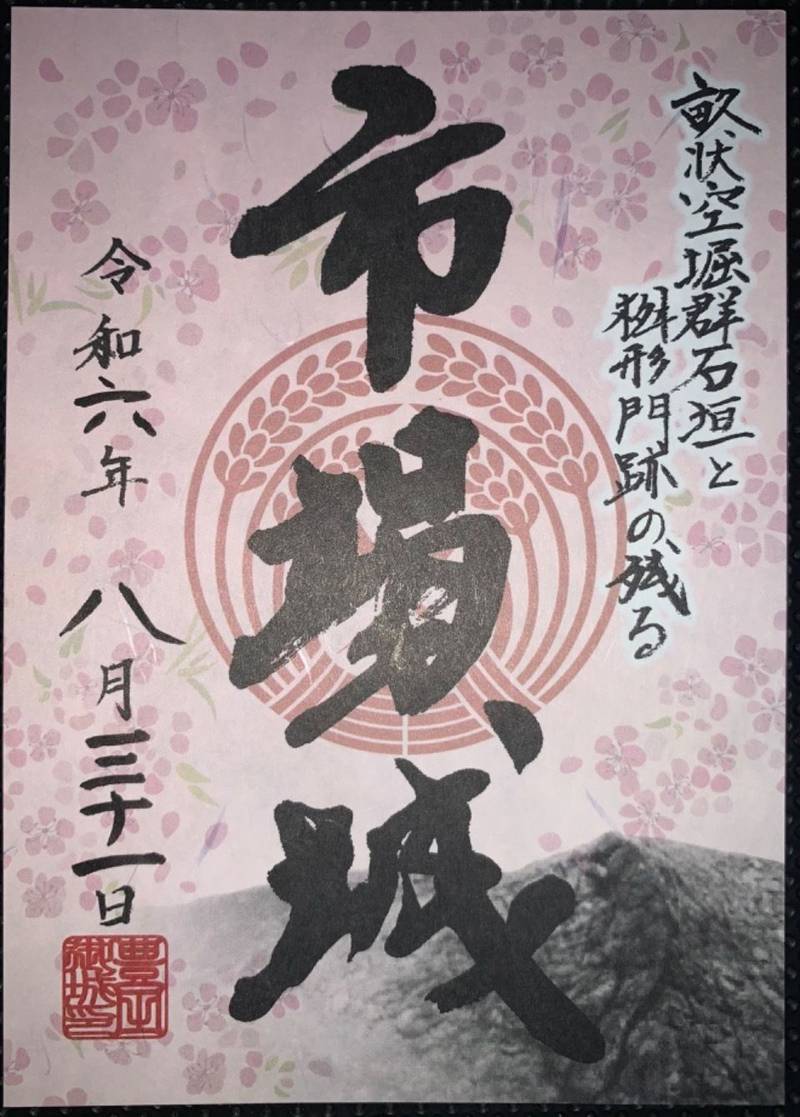 畝状空堀群石垣と
桝形門跡の残る
市場城
令和六年 八月三十一日
御城印